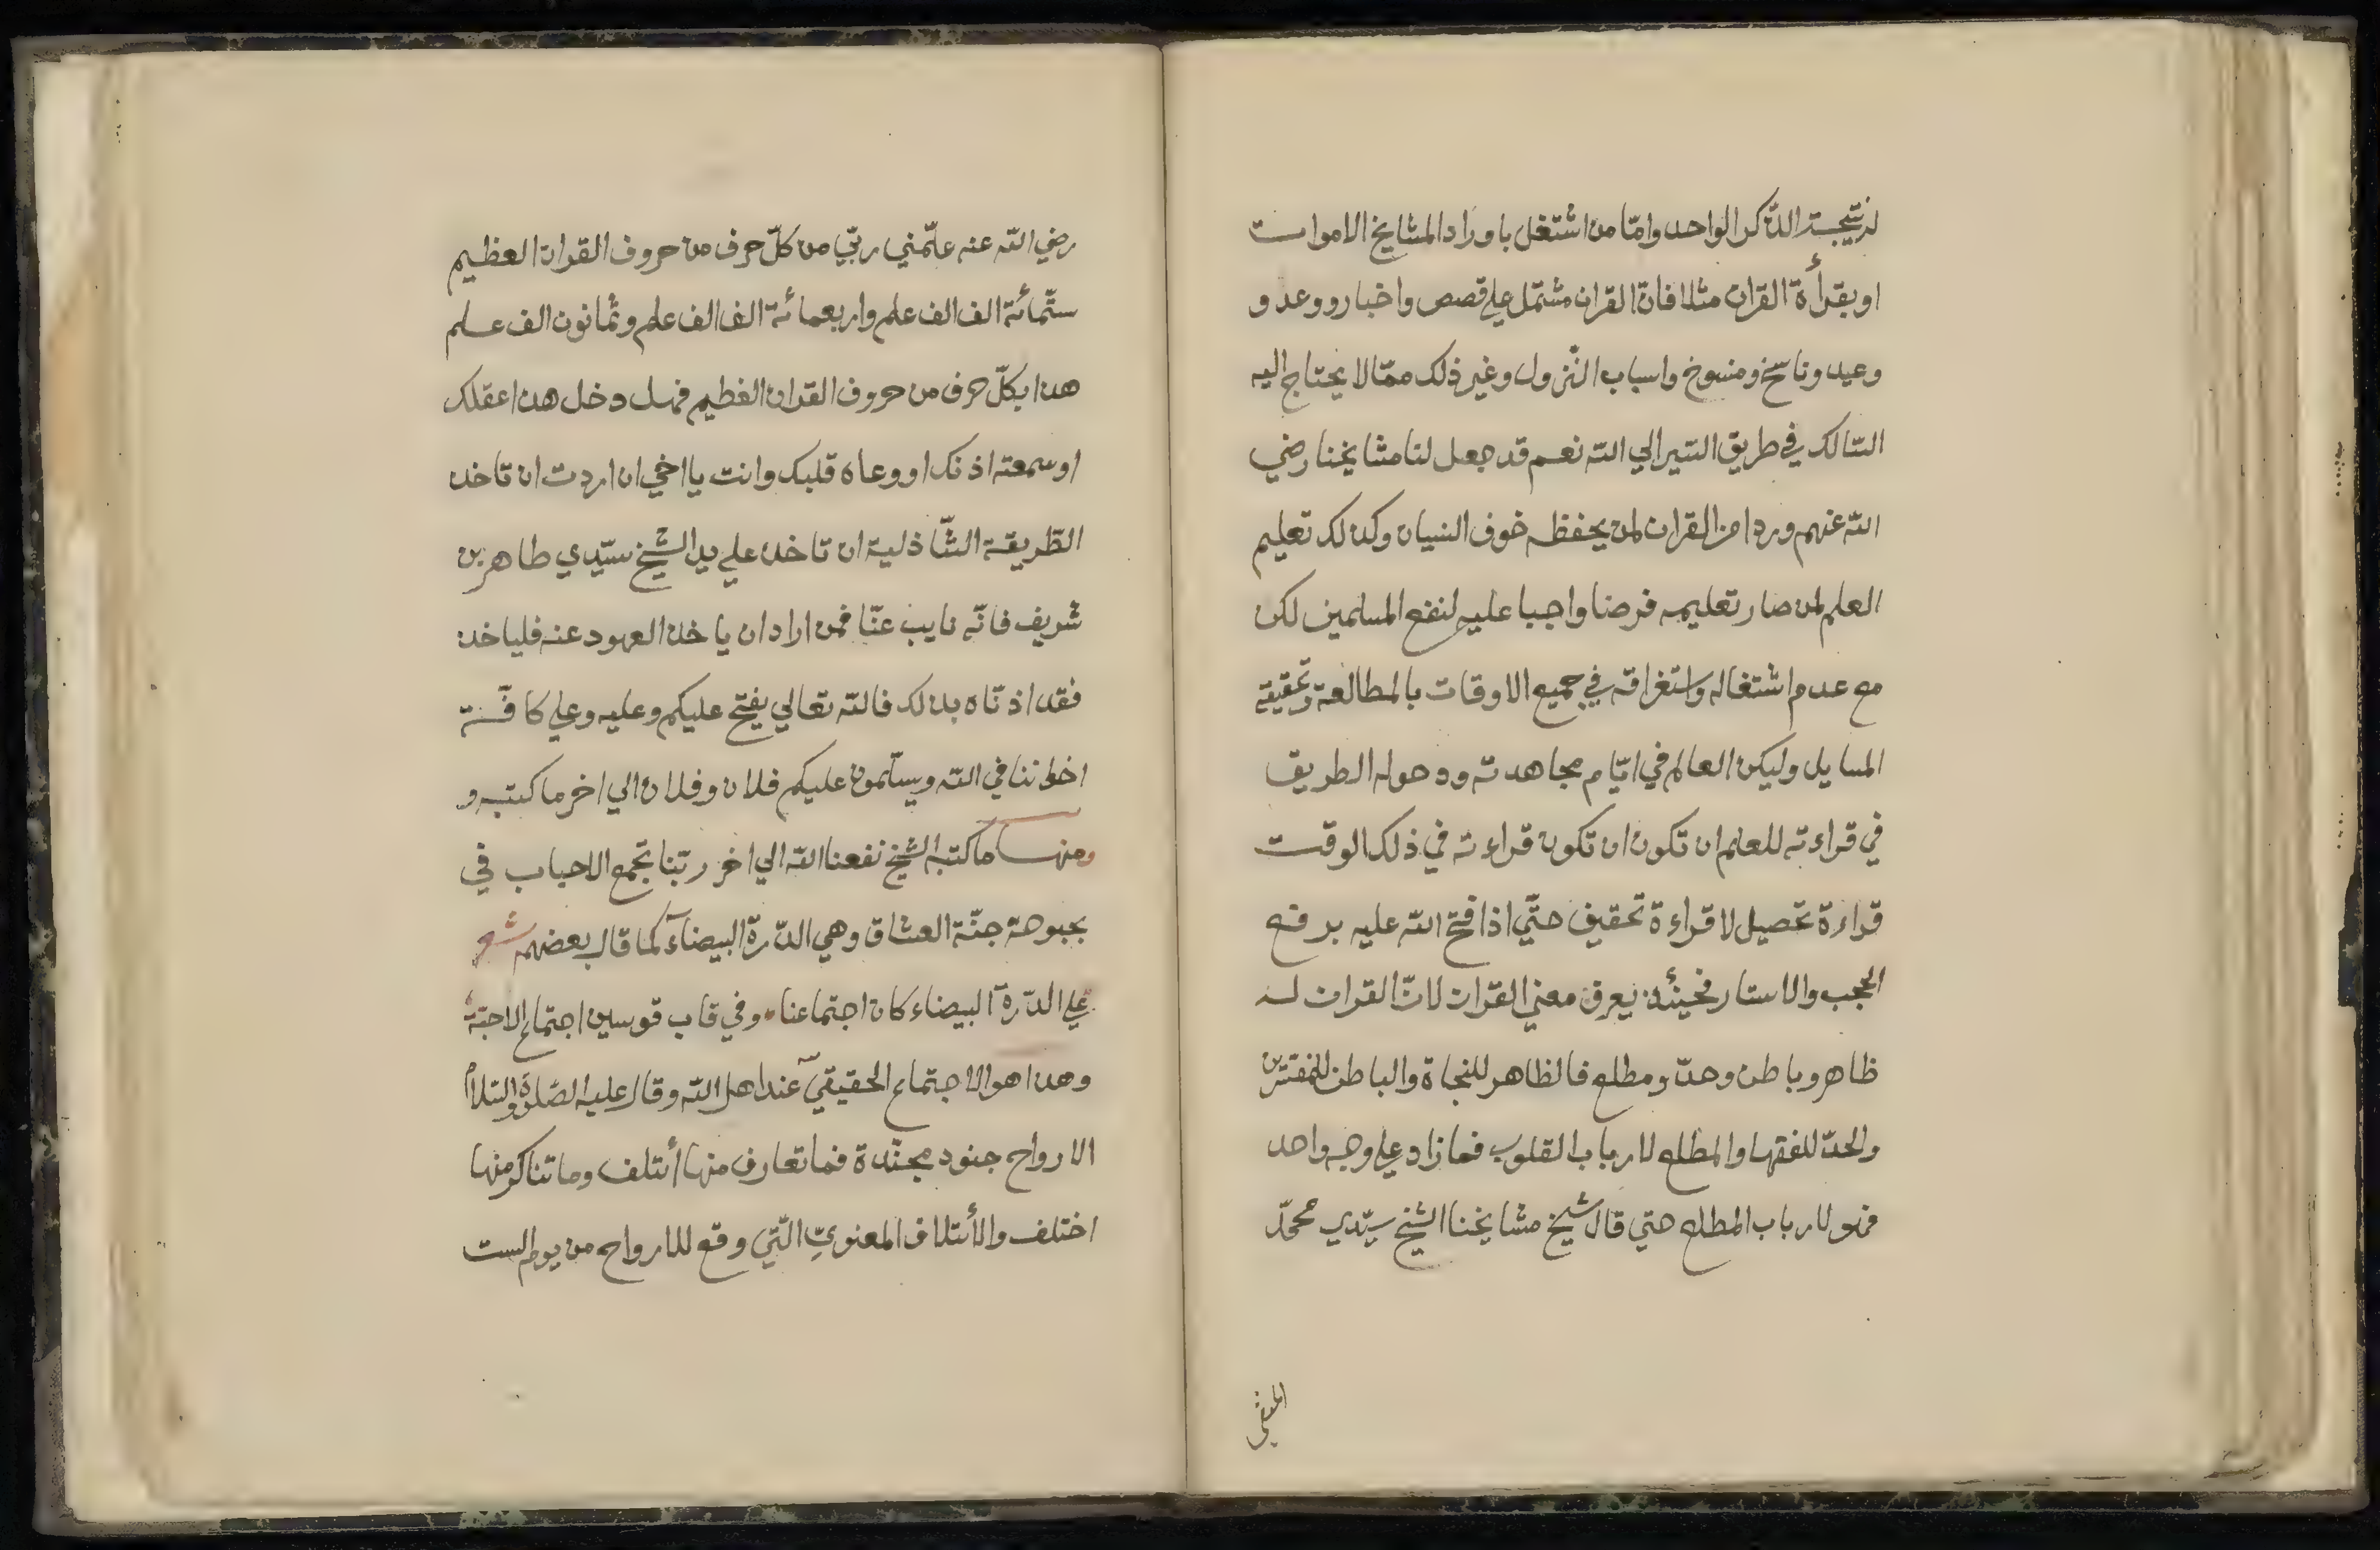 لنتيجة الذّكر الواحد وامّا من اشتغل باوراد المشايخ الاموات
او بقرأة القران مثلا فانّ القران مشتمل علي قصص واخبار ووعد و
وعيد وناسخ ومنسوخ واسباب النّزول وغير ذلك ممّا لا يحتاج اليه
السّالك في طريق السّير الي الله نعم قد جعل لنا مشايخنا رضي
الله عنهم وردا من القران لمن يحفظه خوف النسيان وكذلك تعليم
العلم لمن صار تعليمه فرضا واجبا عليه لنفع المسلمين لكن
مع عدم اشتغاله واستغراقه في جميع الاوقات بالمطالعة وتحقيق
المسايل وليكن العالم في ايّام مجاهدته ودخوله الطريق
في قراءته للعلم ان تكون ان تكون قراءته في ذلك الوقت
قراءة تحصيل لا قراءة تحقيق حتّي اذا فتح الله عليه برفع
الحجب والاستار فحينئذ يعرف معني القران لانّ القران له
ظاهر وباطن وحدّ ومطلع فالظاهر للنجاة والباطن للمفسّرين
والحدّ للفقها والمطلع لارباب القلوب فما زاد علي وجه واحد
فهو لارباب المطلع حتي قال شيخ مشايخنا الشيخ سيّدي محمّد
رضي الله عنه علّمني ربّي من كلّ حرف من حروف القران العظيم
ستّمائة الف الف علم واربعمائة الف الف علم وثمانون الف علم
هذا بكلّ حرف من حروف القران العظيم فهل دخل هذا عقلك
او سمعته اذنك او وعاه قلبك وانت يا اخي ان اردت ان تاخذ
الطّريقة الشّاذلية ان تاخذ علي يد الشيخ سيّدي طاهر بن
شريف فانّه نايب عنّا فمن اراد ان ياخذ العهود عنه فلياخذ
فقد اذنّاه بذلك فالله تعالي يفتح عليكم وعليه وعلي كافّة
اخواننا في الله ويسلّمون عليكم فلان وفلان الي اخر ما كتبه و
ومنها ما كتبه الشيخ نفعنا الله الي اخر ربّنا تجمع الاحباب في
بحبوحة جنّة العشاق وهي الدّرة البيضآء كما قال بعضهم شعر
علي الدّرة البيضاء كان اجتماعنا وفي قاب قوسين اجتماع الاحبّة
وهذا هو الاجتماع الحقيقيّ عند اهل الله وقال عليه الصّلوة والسّلام
الارواح جنود مجنّدة فما تعارف منها أئتلف وما تناكر منها
اختلف والأئتلاف المعنويّ الّتي وقع للارواح من يوم الست